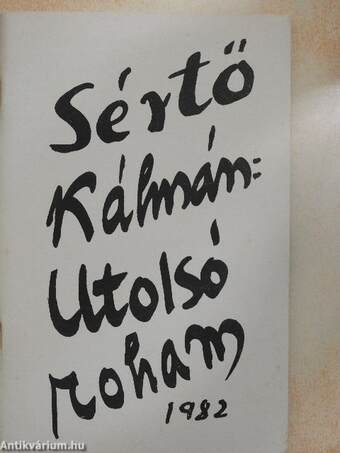 Sértő
Kálmán:
Utolsó
roham
1982
Antikvárium.hu